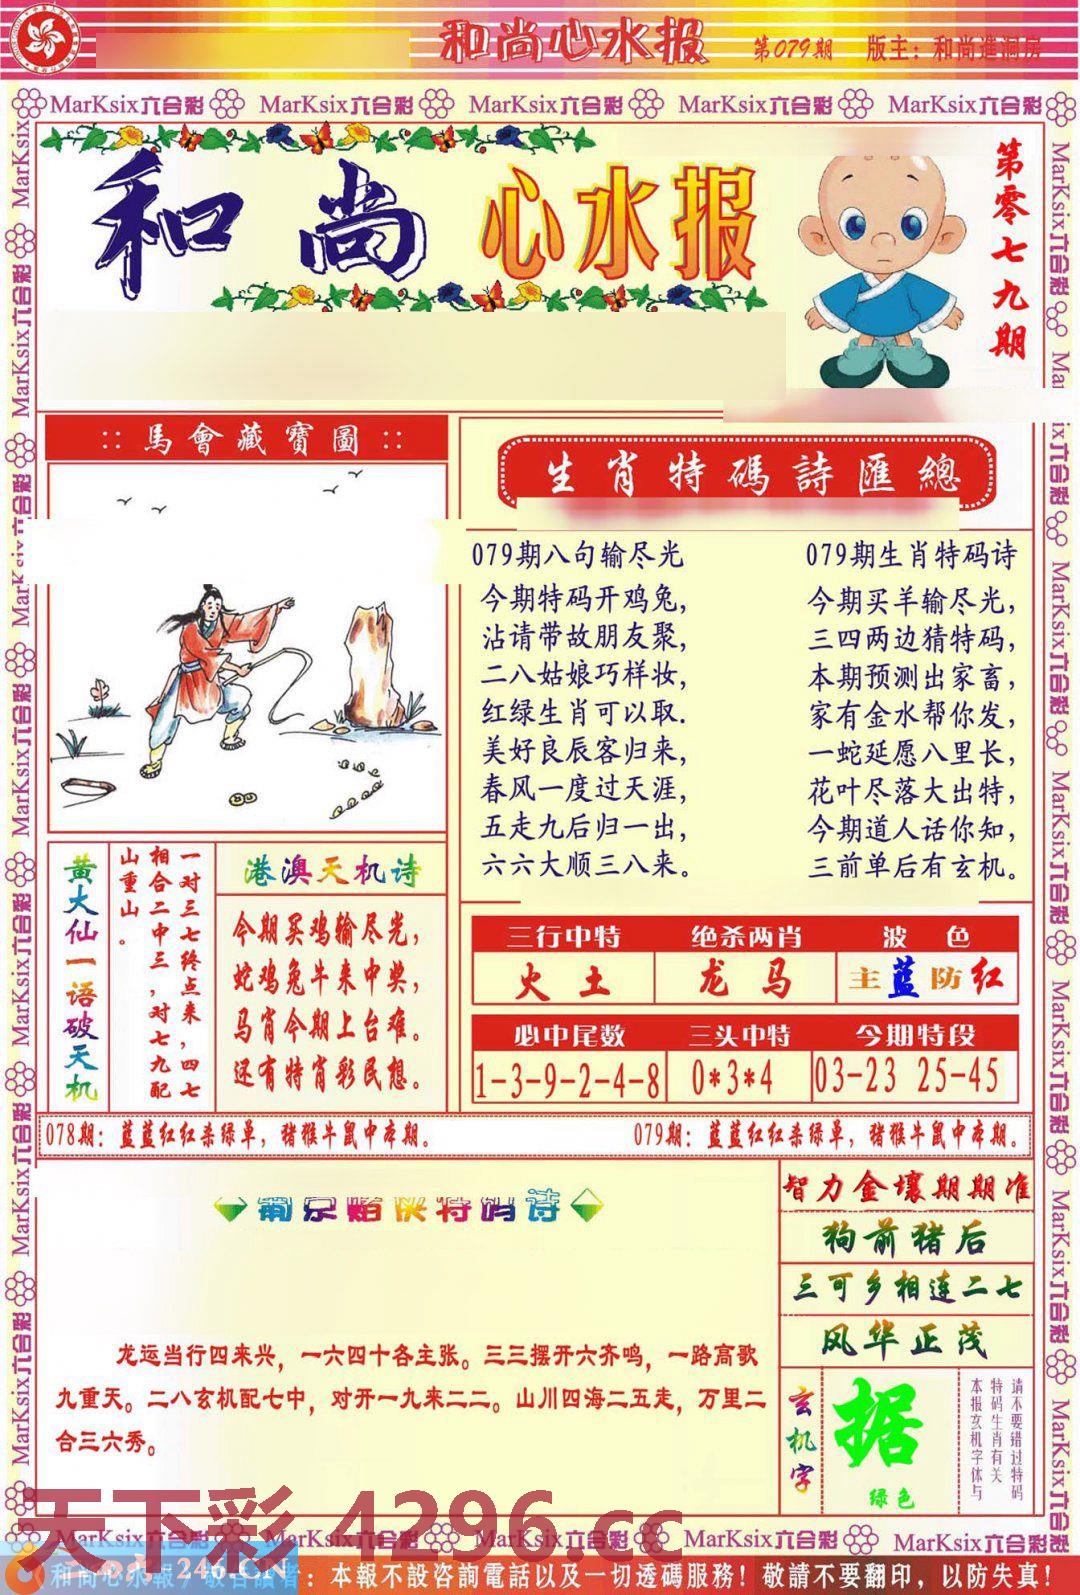 和尚心水报 第079期 版主：和尚進洞房
MarKsix六合彩 MarKsix六合彩 MarKsix六合彩 MarKsix六合彩 MarKsix六合彩
和尚 心水报
第零七九期
::馬會藏寶圖::
生肖特碼詩匯總
079期八句输尽光
今期特码开鸡兔，
沾请带故朋友聚，
二八姑娘巧样妆，
红绿生肖可以取.
美好良辰客归来，
春风一度过天涯，
五走九后归一出，
六六大顺三八来。
079期生肖特码诗
今期买羊输尽光，
三四两边猜特码，
本期预测出家畜，
家有金水帮你发，
一蛇延愿八里长，
花叶尽落大出特，
今期道人话你知，
三前单后有玄机。
黄大仙一语破天机
一对三七终点来，四七
相合二中三，对七九配
山重山。
港澳天机诗
今期买鸡输尽光，
蛇鸡兔牛来中奖，
马肖今期上台难。
还有特肖彩民想。
三行中特 绝杀两肖 波 色
火 土 龙 马 主蓝防红
必中尾数 三头中特 今期特段
1-3-9-2-4-8 0*3*4 03-23 25-45
078期：蓝蓝红红杀绿单，猪猴牛鼠中本期。 079期：蓝蓝红红杀绿单，猪猴牛鼠中本期。
葡京赌侠特码诗
龙运当行四来兴，一六四十各主张。三三摆开六齐鸣，一路高歌
九重天。二八玄机配七中，对开一九来二二。山川四海二五走，万里二
合三六秀。
智力金壤期期准
狗前猪后
三可乡相连二七
风华正茂
玄机字
据
绿色
请不要错过特码
特码生肖有关
本报玄机字体与
天下彩 4296.cc
MarKsix六合彩 MarKsix六合彩 MarKsix六合彩 MarKsix六合彩 MarKsix六合彩
246.CN
：本報不設咨詢電話以及一切透碼服務！敬請不要翻印，以防失真！